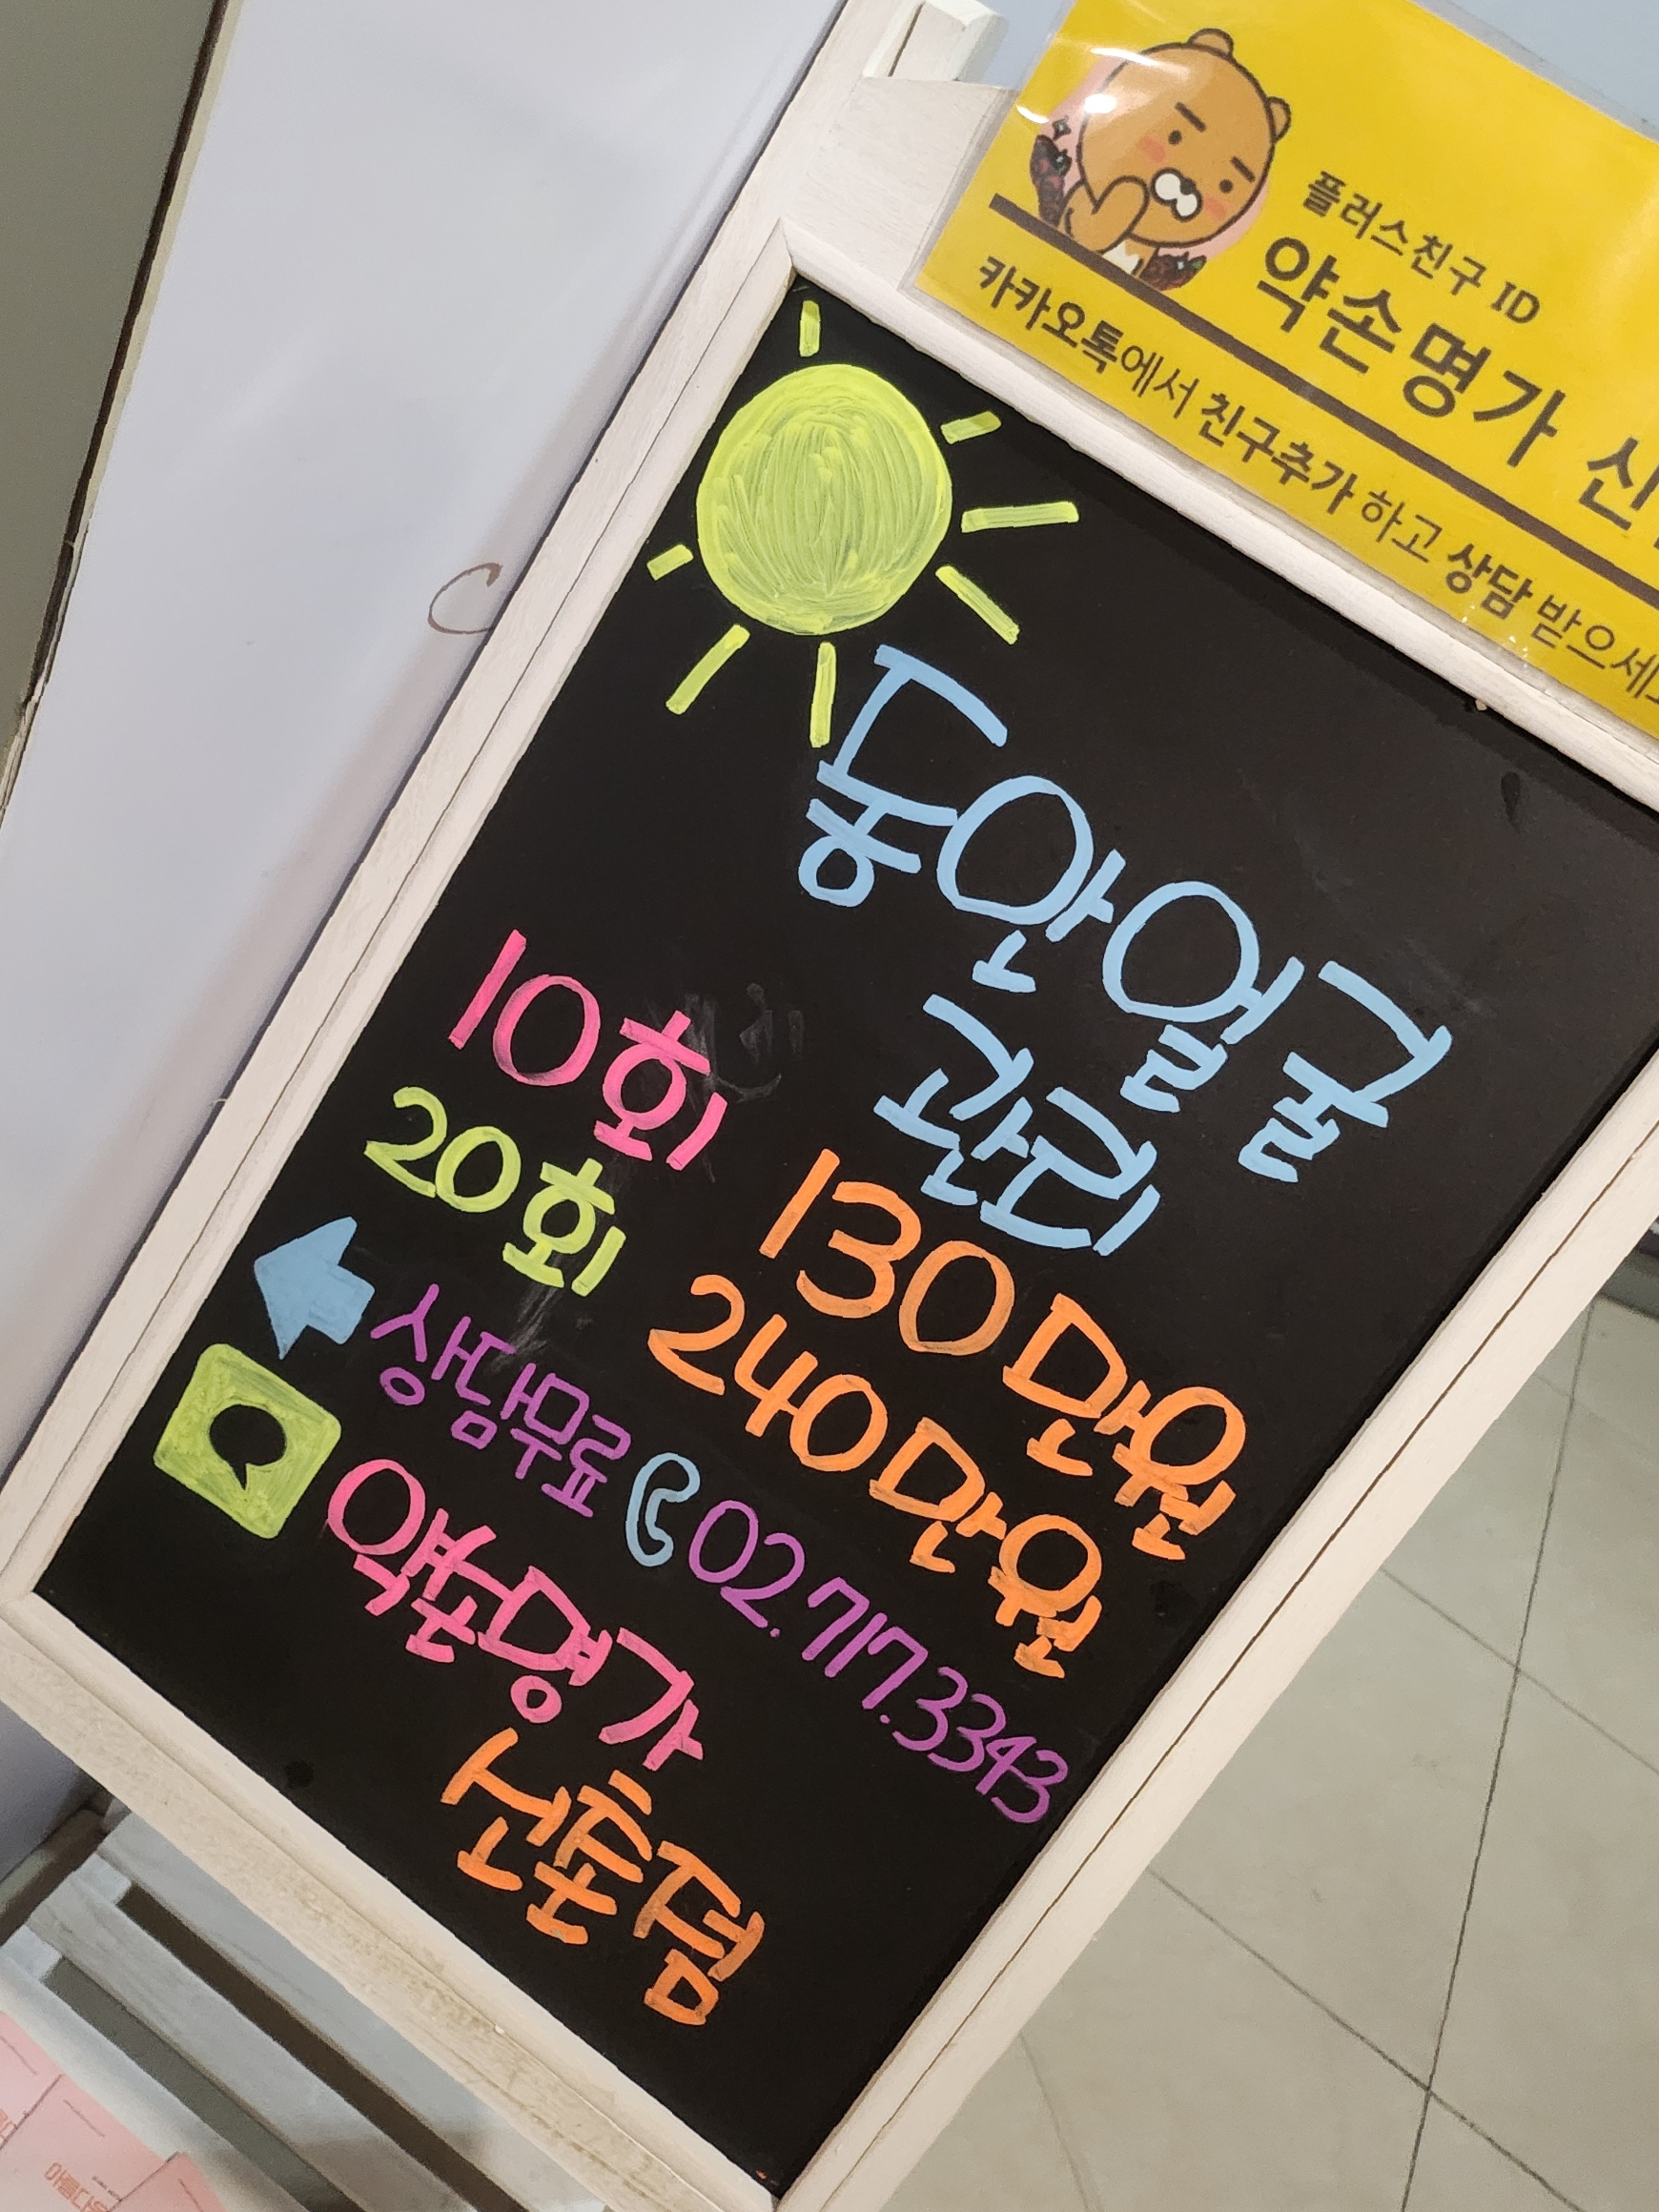 플러스친구 ID
약손명가
카카오톡에서 친구추가 하고 상담 받으세
동안얼굴
관리
10회 130만원
20회 240만원
상담무료 02.717.3343
약손명가
신촌점